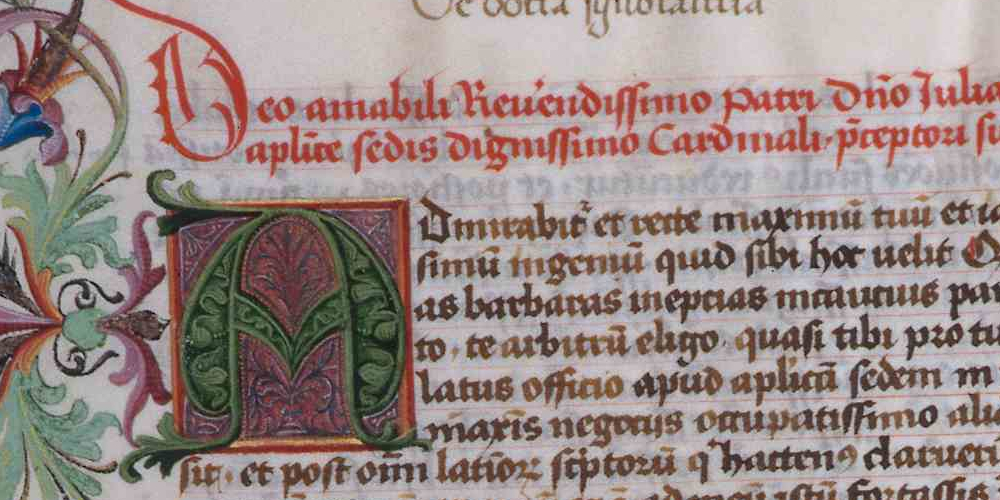 De docta ignorantia
Deo amabili Reuendissimo patri Dño Julia
aplice sedis dignissimo Cardinali p̄ceptori su
Admirabit᷑ et recte maximū tuū et ia
simū ingeniū quid sibi hoc uelit Q
as barbaras ineptias incautius par
to te arbitrū eligo quasi tibi pro tu
latus officio apud aplicā sedem in
maxīs negocijs occupatissimo aliq
sit et post oīm latinoꝝ sc̓ptorū q̓ hactenꝰ claruer